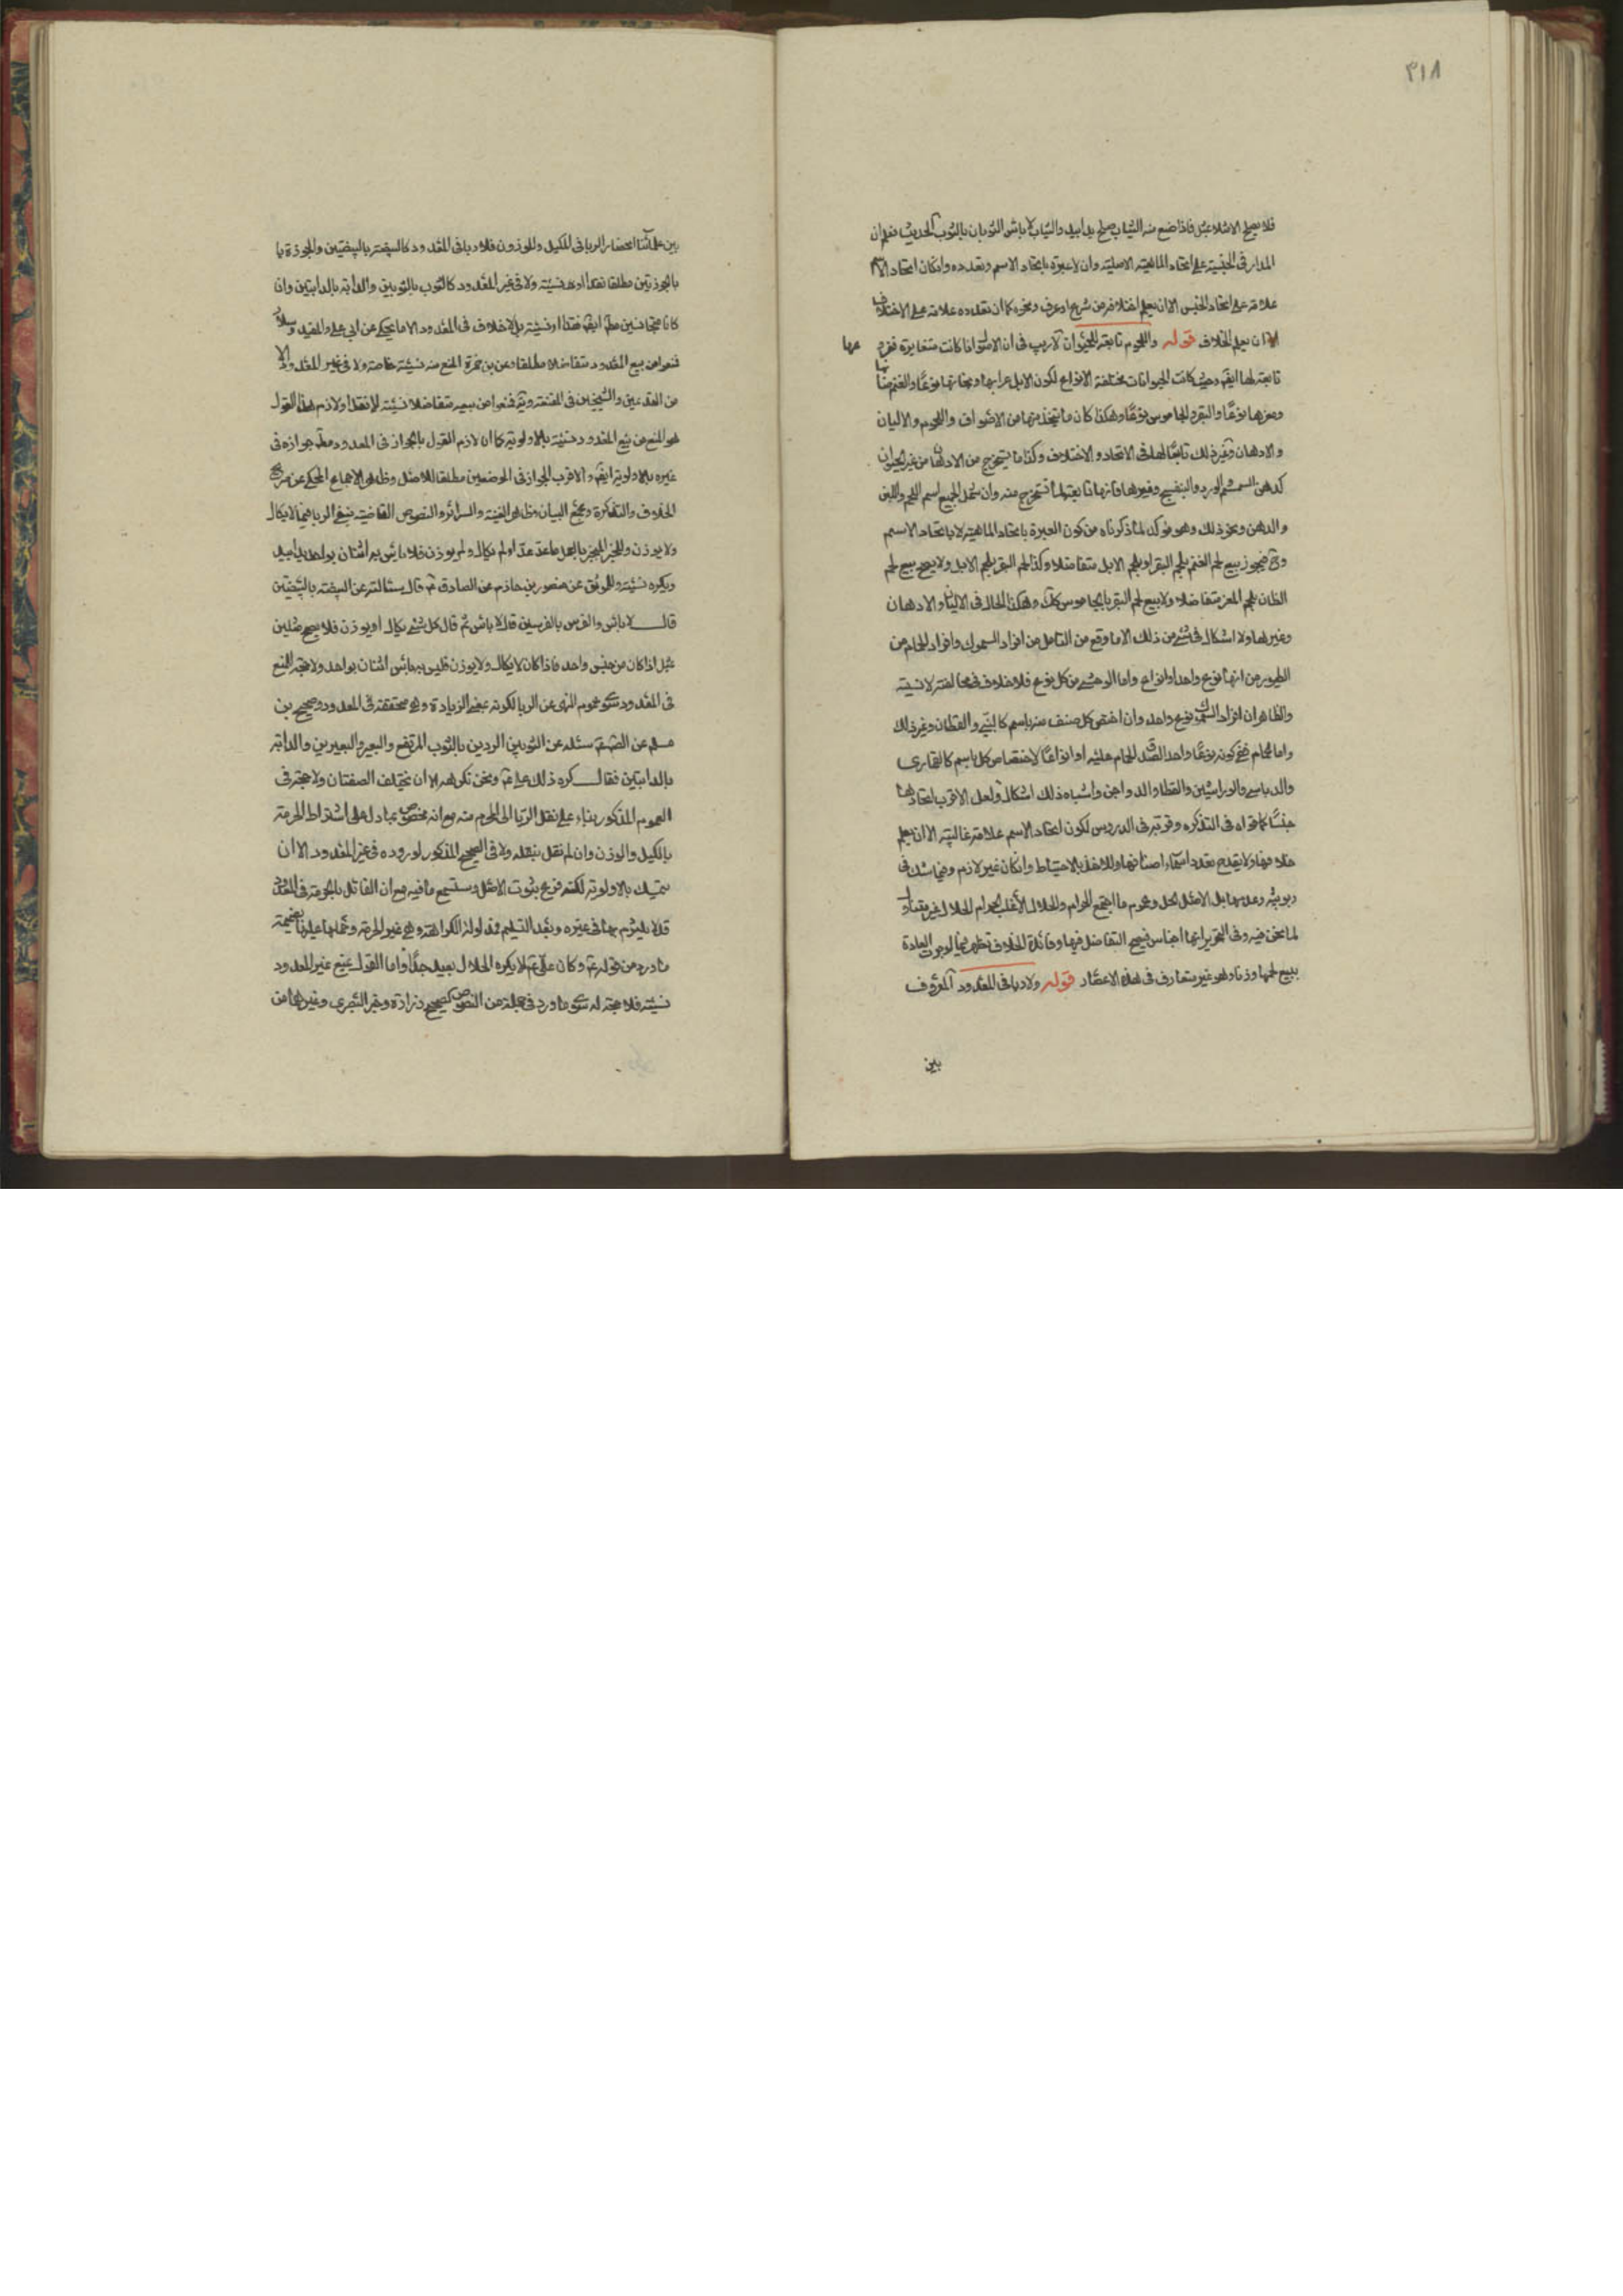 ٣١٨
فلا يصلح الا مثلا بمثل فاذا صنع منه الثياب صلح يدا بيد والثياب لا باس الثوبان بالثوب الحديث فعلم ان
المدار في الجنسية على اتحاد الماهية الاصلية وان لا عبرة باتحاد الاسم وتعدده وان كان اتحاد الاسم
علامة على اتحاد الجنس الا ان يعلم اختلافه من شرع او عرف ونحوه كما ان تعدده علامة على الاختلاف
الا ان يعلم الخلاف قوله واللحوم تابعة للحيوان لا ريب في ان الاصول اذا كانت متغايرة ففروعها
تابعة لها ايضا وحيث كانت الحيوانات مختلفة الانواع لكون الابل عرابها وبخاتيها نوعا والغنم ضانها
ومعزها نوعا والبقر والجاموس نوعا وهكذا كان ما يتخذ منها من الاصواف واللحوم والاليان
والادهان وغير ذلك تابعا لها في الاتحاد والاختلاف وكذا ما يستخرج من الادهان من غير الحيوان
كدهن السمسم والورد والبنفسج وغيرها فانها تابعة لما تستخرج منه وان شمل الجميع اسم اللحم واللبن
والدهن ونحو ذلك وهو مؤكد لما ذكرناه من كون العبرة باتحاد الماهية لا باتحاد الاسم
وح فيجوز بيع لحم الغنم بلحم البقر او بلحم الابل متفاضلا وكذا لحم البقر بلحم الابل ولا يصح بيع لحم
الضان بلحم المعز متفاضلا ولا بيع لحم البقر بالجاموس كك وهكذا الحال في الاليان والادهان
وغيرها ولا اشكال في شئ من ذلك الا ما وقع من التامل من افراد السموك وافراد الحمام من
الطيور من انها نوع واحد او انواع واما الوحشي من كل نوع فلا خلاف في مخالفته لانسيه
والظاهر ان افراد السمك نوع واحد وان اختص كل صنف منه باسم كالبني والقطان وغير ذلك
واما الحمام ففي كونه نوعا واحدا لصدق الحمام عليه او انواعا لاختصاص كل باسم كالقماري
والدباسي والوراشين والقطا والدواجن واشباه ذلك اشكال ولعل الاقرب اتحادها
جنسا كما قواه في التذكرة وقربه في الدروس لكون اتحاد الاسم علامة غالبية الا ان يعلم
خلافها ولا يقدح تعدد اسماء اصنافها وللاخذ بالاحتياط وان كان غير لازم وفيما شك في
ربويته وعدمها بل الاصل الحل وعموم ما اجتمع الحرام والحلال الا غلب الحرام الحلال غير متناول
لما نحن فيه وفي التحرير انها اجناس فيصح التفاضل فيها وفائدة الخلاف تظهر فيما لو جرت العادة
ببيع لحمها وزنا وهو غير متعارف في هذه الاعصار قوله ولا ربا في المعدود المعروف
بين
بين علمائنا انحصار الربا في المكيل والموزون فلا ربا في المعدود كالبيضة بالبيضتين والجوزة با
بالجوزتين مطلقا نقدا او نسيئة ولا في غير المعدود كالثوب بالثوبين والدابة بالدابتين وان
كانا متجانسين مطلقا ايضا نقدا او نسيئة بلا خلاف في المعدود الا ما يحكى عن ابي علي والمفيد وسلار
فمنعوا من بيع المعدود متفاضلا مطلقا وعن بن حمزة المنع منه نسيئة خاصة ولا في غير المعدود الا
من القديمين والشيخين في المقنعة وية فمنعوا من بيعه متفاضلا نسيئة لا نقدا ولازم هذا القول
هو المنع من بيع المعدود نسيئة بالاولوية كما ان لازم القول بالجواز في المعدود مطلقا جوازه في
غيره بالاولوية ايضا والاقرب الجواز في الموضعين مطلقا للاصل وظاهر الاجماع المحكي عن صريح
الخلاف والتذكرة ومجمع البيان وظاهر الغنية والسرائر والنصوص القاضية بنفي الربا فيما لا يكال
ولا يوزن وللخبر المنجبر بالعمل ما عد عدا او لم يكال ولم يوزن فلا باس به اثنان بواحد يدا بيد
ويكره نسيئة وللموثق عن منصور بن حازم عن الصادق ع قال سئالته عن البيضة بالبيضتين
قال لا باس والفرس بالفرسين قال لا باس ثم قال كل شئ يكال او يوزن فلا يصح مثلين
بمثل اذا كان من جنس واحد فاذا كان لا يكال ولا يوزن فليس به باس اثنان بواحد ولا حجة للمنع
في المعدود سوى عموم النهي عن الربا لكونه بمعنى الزيادة وهي متحققة في المعدود وصحيح بن
مسلم عن الصادق ع سئله عن الثوبين الرديين بالثوب المرتفع والبعير والبعيرين والدابة
بالدابتين فقال كره ذلك علي ع ونحن نكرهه الا ان تختلف الصفتان ولا حجة في
العموم المذكور بناء على نقل الربا الى المحرم منه مع انه مخصوص بما دل على اشتراط الحرمة
بالكيل والوزن وان لم نقل بنقله ولا في الصحيح المذكور لوروده في غير المعدود الا ان
يتمسك بالاولوية لكنه فرع ثبوت الاصل وستسمع ما فيه مع ان القائل بالحرمة في المعدود
قد لا يلتزم بها في غيره وبعد التسليم فمدلوله الكراهة وهي غير الحرمة وحملها عليها بضميمة
ما ورد من قوله ع وكان علي ع لا يكره الحلال بعيد جدا واما القول بمنع غير المعدود
نسيئة فلا حجة له سوى ما ورد في جملة من النصوص كصحيح زرارة وخبر البصري وغيرها من